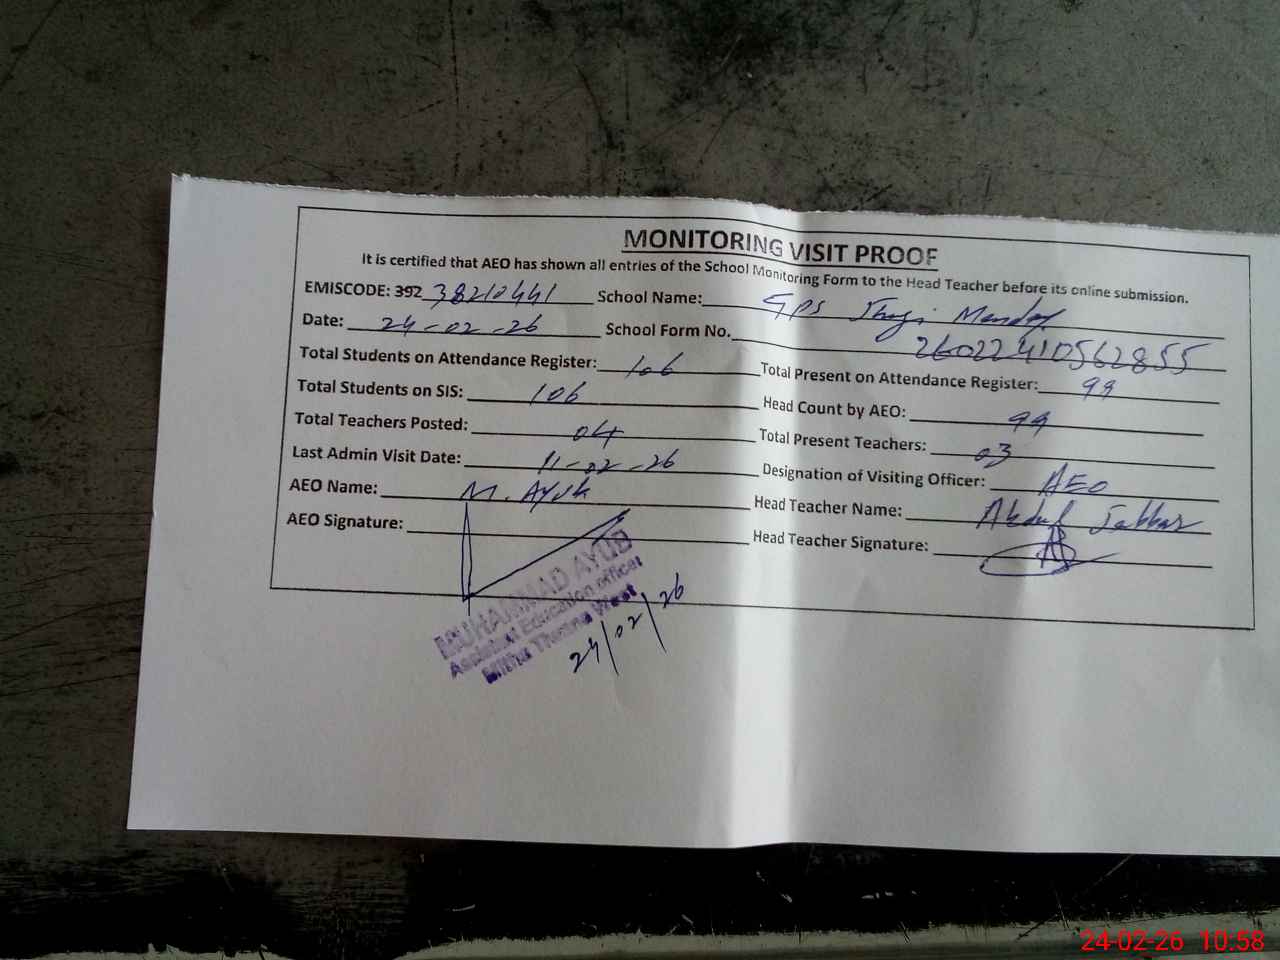 MONITORING VISIT PROOF
It is certified that AEO has shown all entries of the School Monitoring Form to the Head Teacher before its online submission.
EMISCODE: 392 38210441 School Name: GPS Jhugi
Date: 24-02-26 School Form No. 26022410562855
Total Students on Attendance Register: 106 Total Present on Attendance Register: 99
Total Students on SIS: 106 Head Count by AEO: 99
Total Teachers Posted: 04 Total Present Teachers: 03
Last Admin Visit Date: 11-02-26 Designation of Visiting Officer: AEO
AEO Name: M. Ayub Head Teacher Name: Abdul Jabbar
AEO Signature: Head Teacher Signature:
MUHAMMAD AYUB
Assistant Education officer
West
24/02/26
24-02-26 10:58